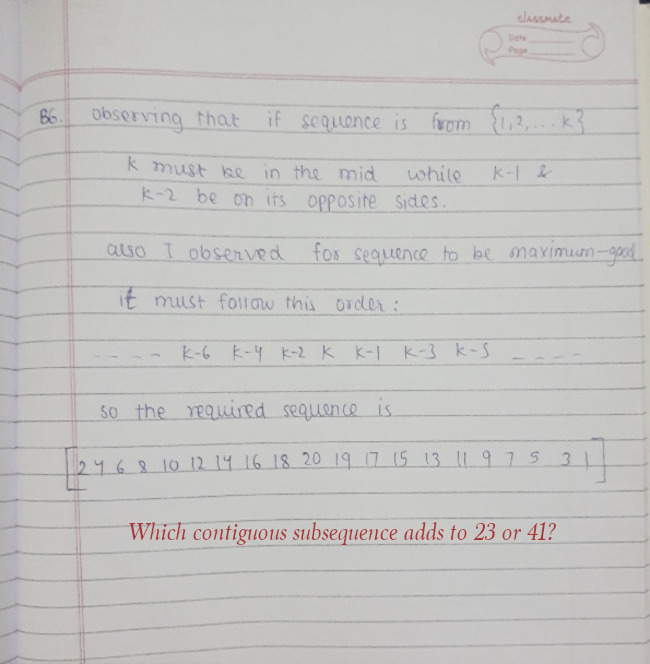 classmate
Date
Page
B6. observing that if sequence is from {1,2,...k}
k must be in the mid while k-1 &
k-2 be on its opposite sides.
also I observed for sequence to be maximum-good
it must follow this order:
---- k-6 k-4 k-2 k k-1 k-3 k-5 ----
so the required sequence is
[2 4 6 8 10 12 14 16 18 20 19 17 15 13 11 9 7 5 3 1]
Which contiguous subsequence adds to 23 or 41?